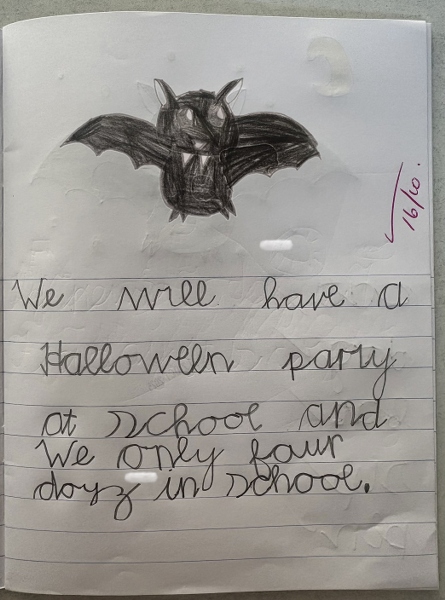 16/10.
We will have a
Halloween party
at school and
We only four
doyz in school.